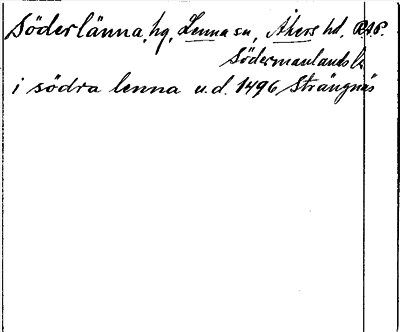 Söderlänna, hg, Lenna sn, Åkers hd, RAP.
Södermanlands l.
i södra lenna u.d. 1496 Strängnäs